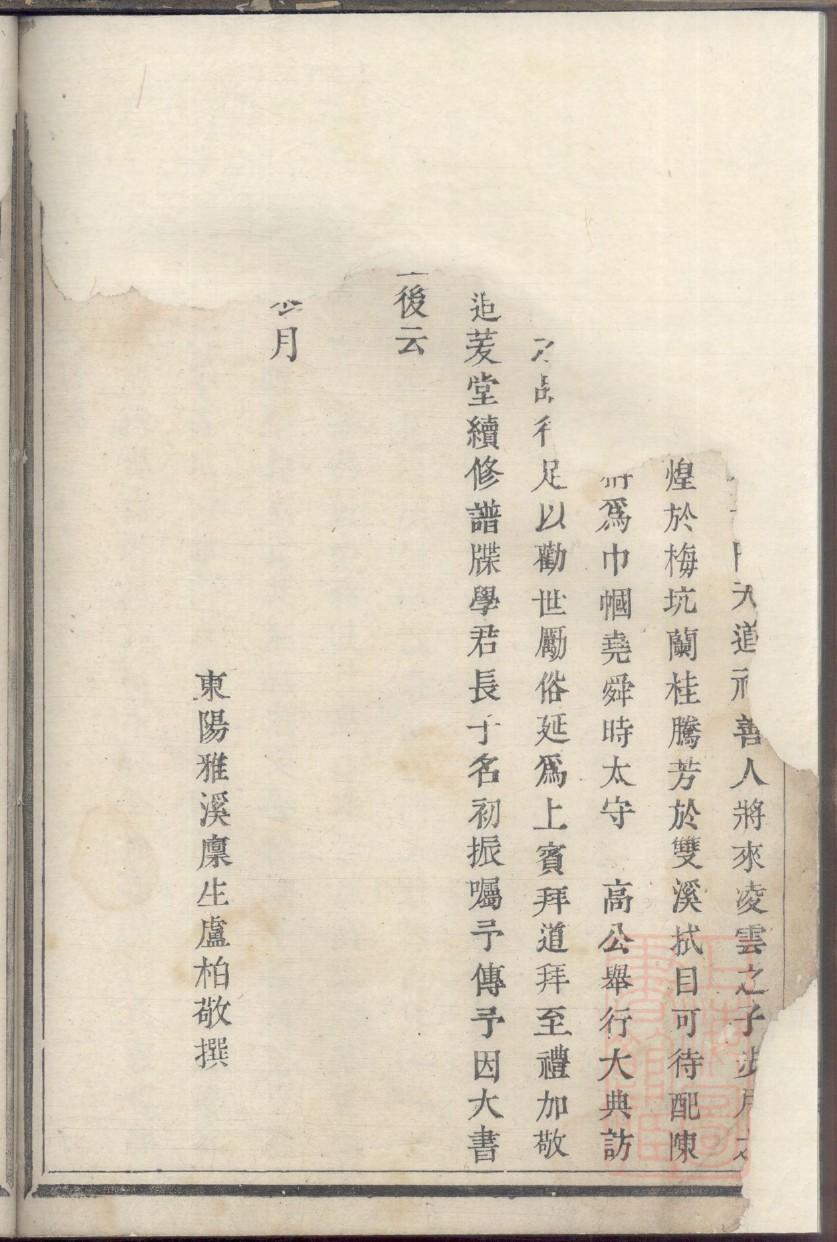 天道福善人將來凌雲之子步月之
煌於梅坑蘭桂騰芳於雙溪拭目可待配陳
爲巾幗堯舜時太守　高公舉行大典訪
足以勸世勵俗延爲上賓拜道拜至禮加敬
追茇堂續修譜牒學君長子名初振囑予傳予因大書
後云
月
東陽雅溪廩生盧柏敬撰